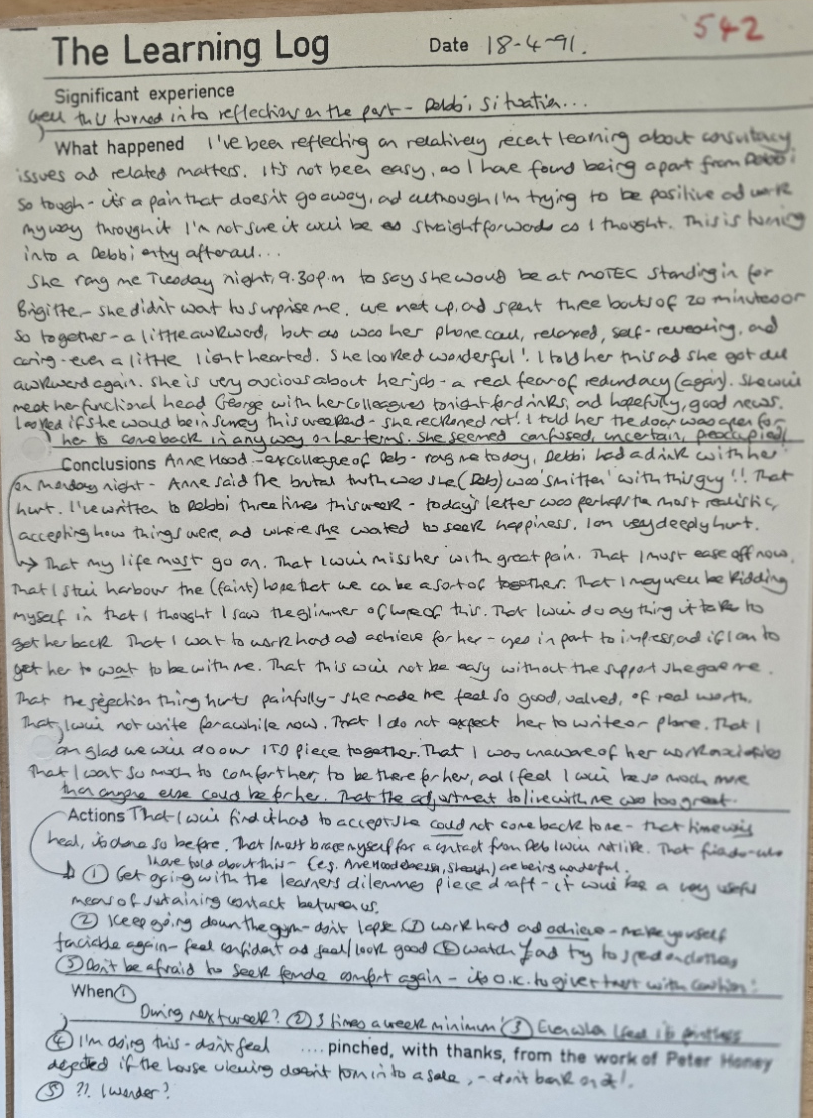 The Learning Log Date 18-4-91. 542
Significant experience
well this turned into reflections on the past - Debbi situation...
What happened I've been reflecting on relatively recent learning about consultancy
issues ad related matters. It's not been easy, as I have found being apart from Debbi
so tough - it's a pain that doesn't go away, ad although I'm trying to be positive ad work
my way through it I'm not sure it will be as straightforwards as I thought. This is turning
into a Debbi entry afterall...
She rang me Tuesday night, 9.30p.m to say she would be at MOTEC standing in for
Brigitte - she didn't wat to surprise me. We met up, ad spent three bouts of 20 minutes or
so together - a little awkward, but as was her phone call, relaxed, self-revealing, and
caring - even a little light hearted. She looked wonderful! I told her this ad she got all
awkward again. She is very anxious about her job - a real fear of redundancy (again). She will
meet her functional head George with her colleagues tonight for drinks, and hopefully, good news.
I asked if she would be in Surrey this weekend - she reckoned not! I told her the door was open for
her to come back in any way on her terms. She seemed confused, uncertain, preoccupied
Conclusions Anne Hood - excolleague of Deb - rang me today, Debbi had a drink with her
on Monday night - Anne said the brutal truth was she (Deb) was 'smitten' with this guy!! That
hurt. I've written to Debbi three times this week - today's letter was perhaps the most realistic,
accepting how things were, ad where she wated to seek happiness. I am very deeply hurt.
→ That my life must go on. That I will miss her with great pain. That I must ease off now.
That I still harbour the (faint) hope that we ca be a sort of together. That I may well be kidding
myself in that I thought I saw the glimmer of hope of this. That I will do anything it takes to
get her back. That I wat to work hard ad achieve for her - yes in part to impress, ad if I can to
get her to wat to be with me. That this will not be easy without the support she gave me.
That the rejection thing hurts painfully - she made me feel so good, valued, of real worth.
That I will not write for awhile now. That I do not expect her to write or phone. That I
am glad we will do our ITD piece together. That I was unaware of her work anxieties
That I want so much to comfort her, to be there for her, ad I feel I will be so much more
than anyone else could be for her. That the adjustment to live with me was too great.
Actions That I will find it had to accept she could not come back to me - that time will
heal, its done so before. That I must brace myself for a contact from Deb I will not like. That friends who
I have told about this - (e.g. Anne Hood) are being wonderful.
① Get going with the learners dilemmas piece draft - it will be a very useful
means of sustaining contact between us.
② Keep going down the gym - don't lapse work hard and achieve - make yourself
fanciable again - feel confident ad feel/look good watch £ ad try to spend on clothes
⑤ Don't be afraid to seek female comfort again - its O.K. to give trust with caution!
When ①
During next week? ② 3 times a week minimum! ③ Even when I feel its pointless
④ I'm doing this - don't feel ....pinched, with thanks, from the work of Peter Honey
dejected if the house viewing doesn't turn into a sale, - don't bank on it!
⑤ ?? I wonder?